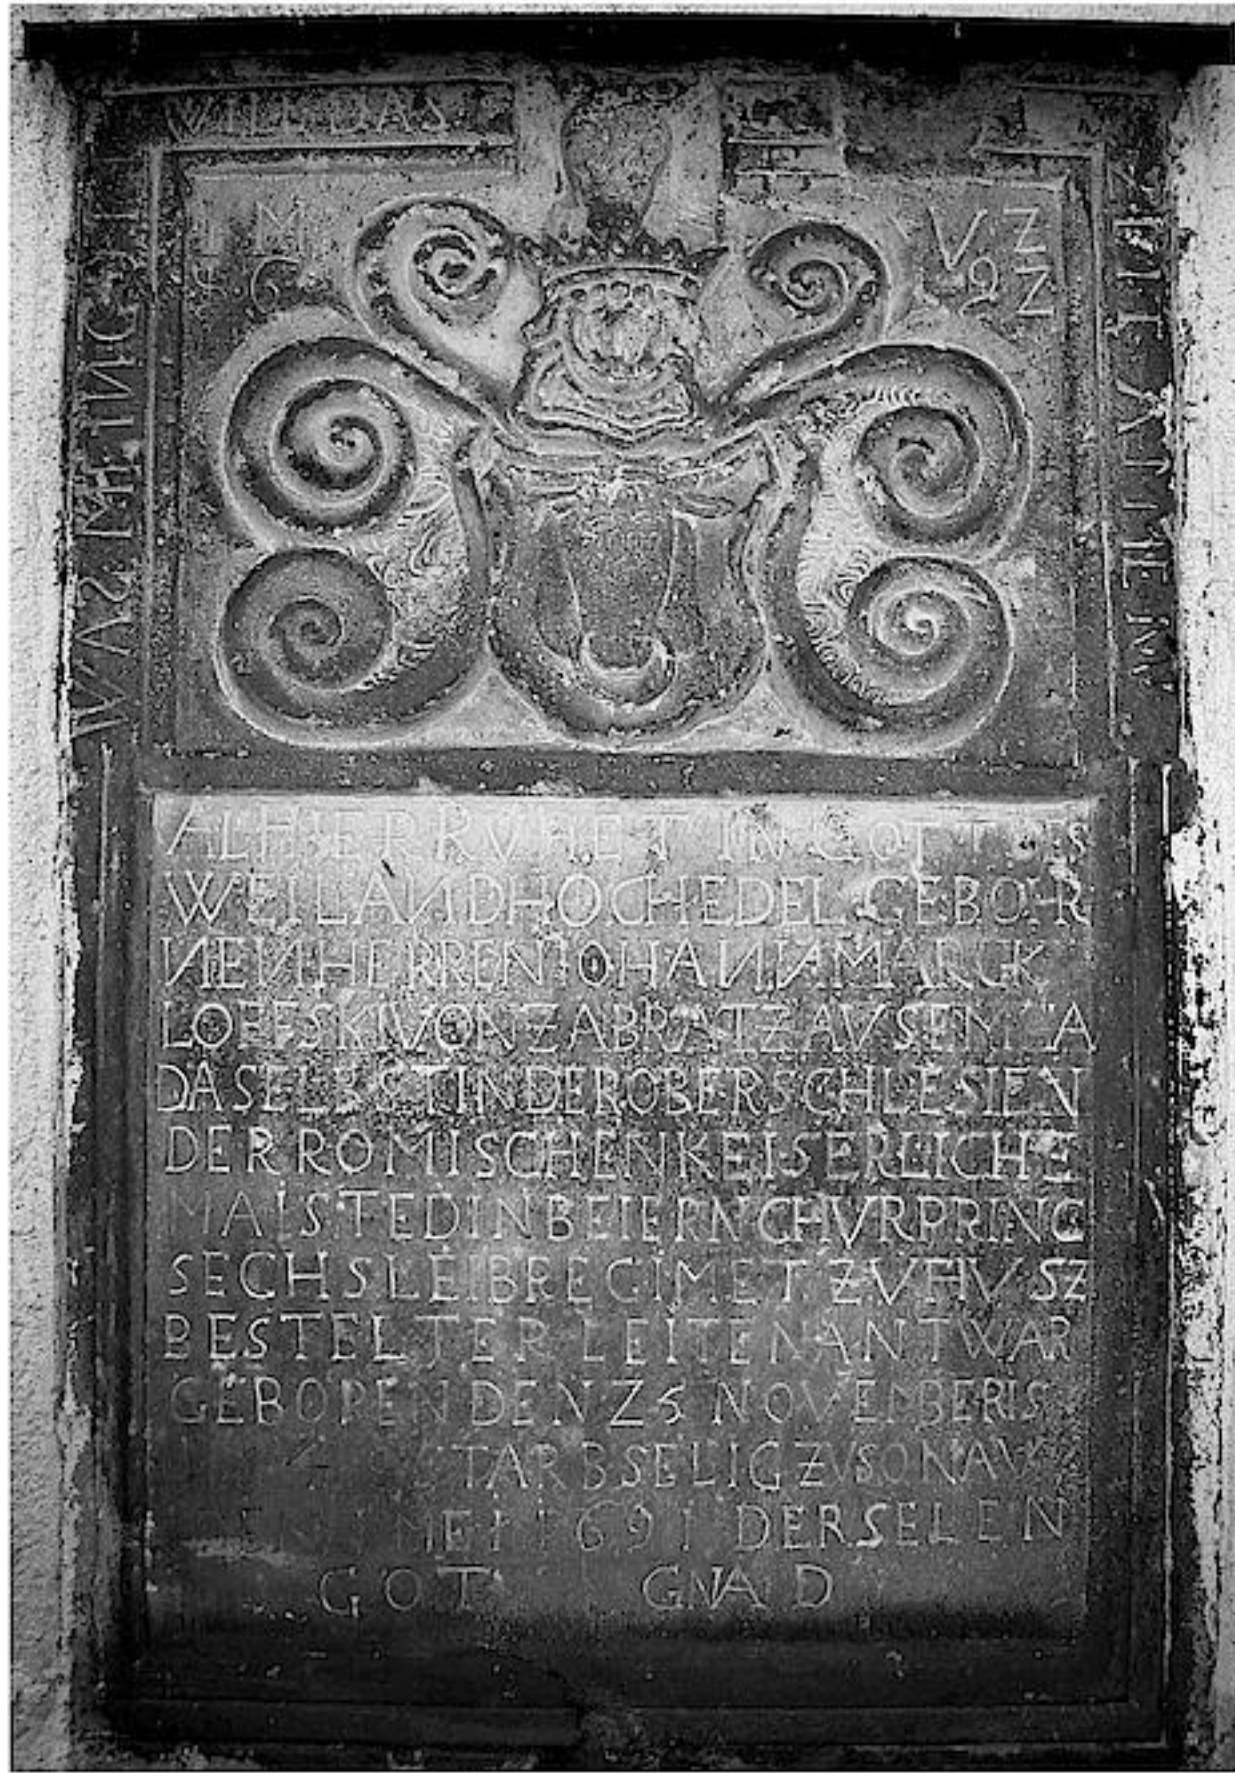 WILL DAS
WAS MEIN GOT
ZEIT ALLEM
I M V Z
1 6 9 2
ALHIER RVHET IN GOT DES
WEILAND HOCHEDEL GEBOR
NEN HERREN IOHANN MARCK
LOFFSKI VON ZABRATZ AVS EM A
DASELBST IN DER OBERSCHLESIEN
DER ROMISCHEN KEISERLICHE
MAISTED IN BEIERN CHVRPRING
SECHS LEIBREGIMET ZV FVSZ
BESTELTER LEITENANT WAR
GEBOREN DEN Z5 NOVEMBERIS
STARB SELIG ZV SONAV
MEI 1691 DER SELEN
GOT GNAD